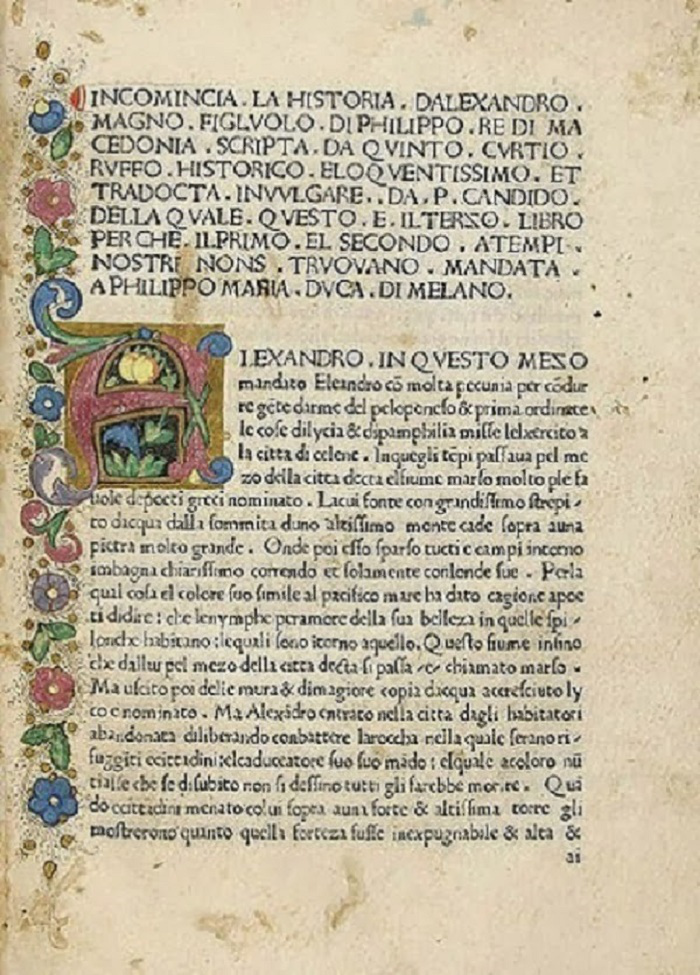 INCOMINCIA . LA HISTORIA . DALEXANDRO .
MAGNO . FIGLVOLO . DI PHILIPPO . RE DI MA
CEDONIA . SCRIPTA . DA QVINTO . CVRTIO .
RVFFO . HISTORICO . ELOQVENTISSIMO . ET
TRADOCTA . INVVLGARE . . DA . P . CANDIDO .
DELLA QVALE . QVESTO . E . ILTERZO . LIBRO
PERCHE . ILPRIMO . EL SECONDO . ATEMPI .
NOSTRI NONS . TRVOVANO . MANDATA .
A PHILIPPO MARIA . DVCA . DI MELANO .
A
LEXANDRO . IN QVESTO MEZO
mandato Eleandro cō molta pecunia per cōdur
re gēte darme del peloponeso & prima ordinate
le cose dilycia & dipamphilia misse lelxercito a
la citta di celene . Inquegli tēpi passaua pel me
zo della citta decta elfiume marso molto ple fa
uole depoeti greci nominato . Lacui fonte con grandissimo strepi
to dacqua dalla sommita duno altissimo monte cade sopra auna
pietra molto grande . Onde poi esso sparso tucti e campi intorno
imbagna chiarissimo correndo et solamente conlonde sue . Perla
qual cosa el colore suo simile al pacifico mare ha dato cagione apoe
ti didire : che lenymphe peramore della sua belleza in quelle spi
lonche habitano : lequali sono itorno aquello . Questo fiume insino
che dallui pel mezo della citta decta si passa e chiamato marso .
Ma uscito poi delle mura & dimagiore copia dacqua accresciuto ly
co e nominato . Ma Alexādro entrato nella citta dagli habitatori
abandonata diliberando conbattere laroccha nella quale serano ri
fuggiti ecittadini : elcaduceatore suo suo mādo : elquale acoloro nū
tiasse che se disubito non si dessino tutti gli farebbe morire . Quā
do ecittadini menato colui sopra auna forte & altissima torre gli
mostrerono quanto quella forteza fusse inexpugnabile & alta &
ai